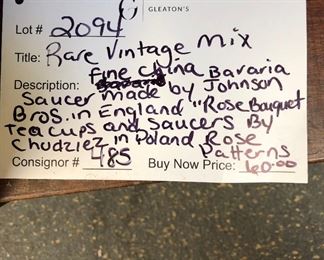 G GLEATON'S
Lot # 2094
Title: Rare Vintage mix
Fine China Bavaria
Description: Saucer made by Johnson
Bros. in England "Rose Bouquet
Teacups and Saucers By
Chudziez in Poland Rose
Patterns
Consignor # 485 Buy Now Price: 60.00